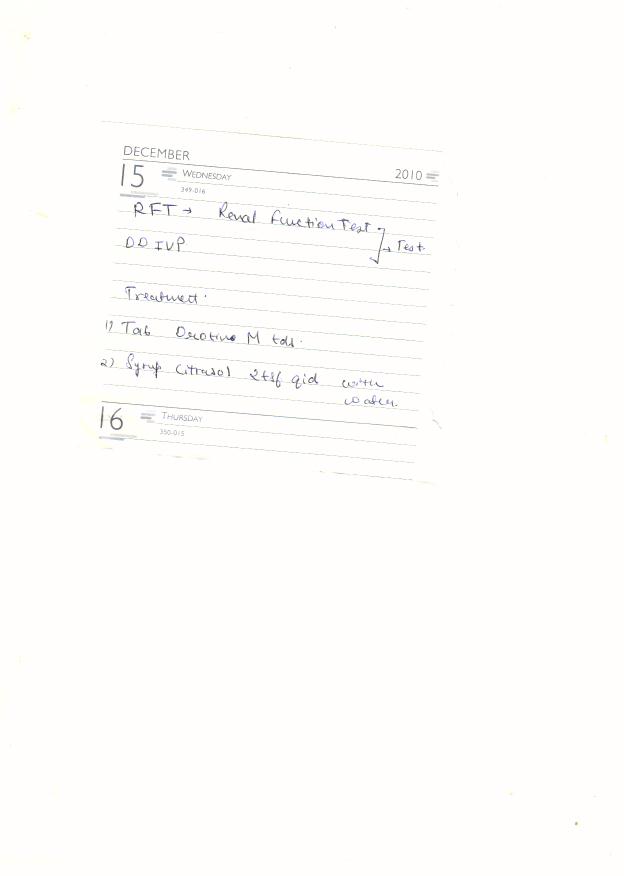 DECEMBER
15 WEDNESDAY 2010
349-016
RFT → Renal Function Test
DD IVP → Test
Treatment.
1) Tab Drotine M tds.
2) Syrup Citrasol 2tsf qid with
water.
16 THURSDAY
350-015